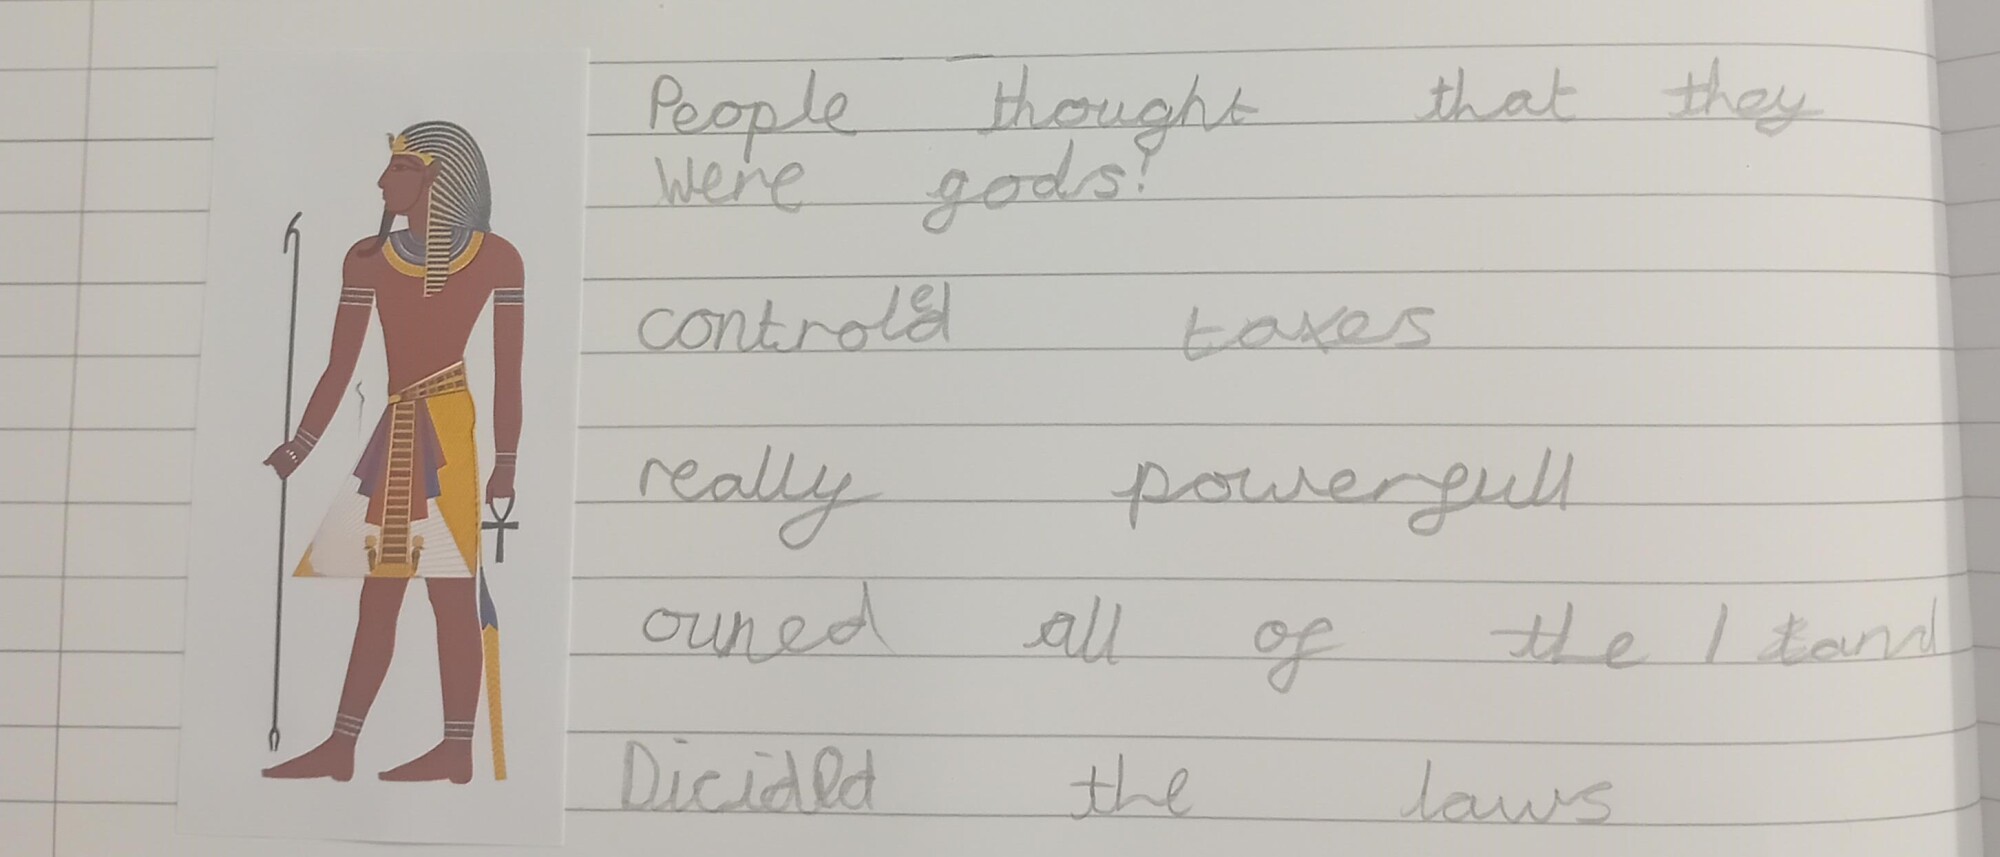 People thought that they
were gods!
controled taxes
really powerfull
owned all of the land
Dicided the laws